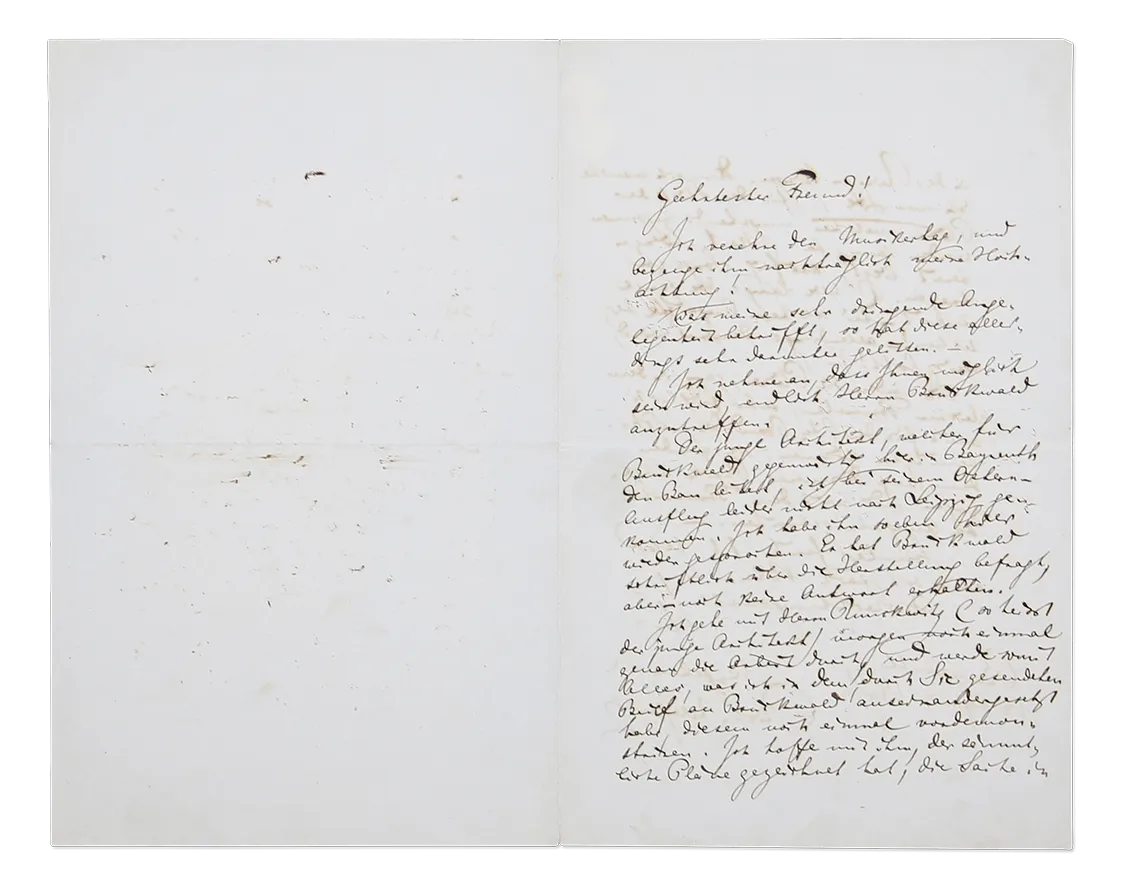 Geehrtester Freund!
Ich verehre den Musikertag, und
bezeuge ihm nachträglich meine Hoch-
achtung!
Was meine sehr dringende Ange-
legenheit betrifft, so hat diese aller-
dings sehr darunter gelitten. –
Ich nehme an, dass Ihnen möglich
sein wird, endlich Herrn Brückwald
anzutreffen.
Der junge Architekt, welcher für
Brückwald gegenwärtig hier in Bayreuth
den Bau leitet, ist bei seinem Ostern-
Ausflug leider nicht nach Leipzig ge-
kommen. Ich habe ihn soeben
wieder gesprochen. Er hat Brückwald
schriftlich über die Herstellung befragt,
aber noch keine Antwort erhalten.
Ich gehe mit Herrn Runckwitz (so heisst
der junge Architekt) morgen noch einmal
genau die Arbeit durch, und werde somit
Alles, was ich in dem, durch Sie gesendeten
Brief an Brückwald auseinandergesetzt
habe, diesem noch einmal vordemon-
striren. Ich hoffe mit ihm, der sämmt-
liche Pläne gezeichnet hat, die Sache in